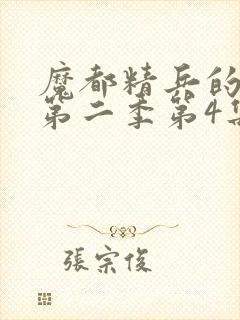 魔都精兵的
第二季第4集
張宗俊